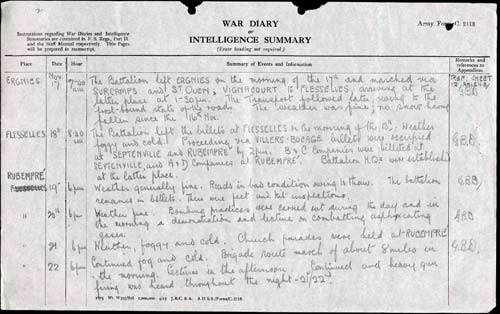 WAR DIARY
OR
INTELLIGENCE SUMMARY
(Erase heading not required.)
Army Form C. 2118
Instructions regarding War Diaries and Intelligence
Summaries are contained in F. S. Regs., Part II.
and the Staff Manual respectively. Title Pages
will be prepared in manuscript.
Place Date Hour Summary of Events and Information Remarks and references to Appendices
ERGNIES Nov 17 The Battalion left ERGNIES on the morning of the 17th and marched via
SURCAMPS and ST OUEN, VIGNACOURT to FLESSELLES, arriving at the
latter place at 1-30pm. The Transport followed later owing to the
frost-bound state of the roads. The weather was fine; no snow having
fallen since the 16th
FLESSELLES 18th 8-30 am The Battalion left the billets at FLESSELLES on the morning of the 18th. Weather
foggy and cold. Proceeding via VILLERS-BOCAGE billets were occupied
at SEPTENVILLE and RUBEMPRÉ by 2pm. B & C Companies were billeted at
SEPTENVILLE, and A & D Companies at RUBEMPRÉ. Battalion HQrs was established
at the latter place.
RUBEMPRÉ 19th 6pm Weather generally fine. Roads in bad condition owing to thaw. The battalion
remains in billets. There were feet and kit inspections.
" 20th 6pm Weather fine. Bombing practices were carried out during the day and in
the morning a demonstration and lecture on combatting asphyxiating
gases.
" 21 6pm Weather, foggy and cold. Church parades were held at RUBEMPRÉ
" 22 6pm Continued fog and cold. Brigade route march of about 8 miles in
the morning. Lectures in the afternoon. Continued and heavy gun
firing was heard throughout the night - 21/22nd